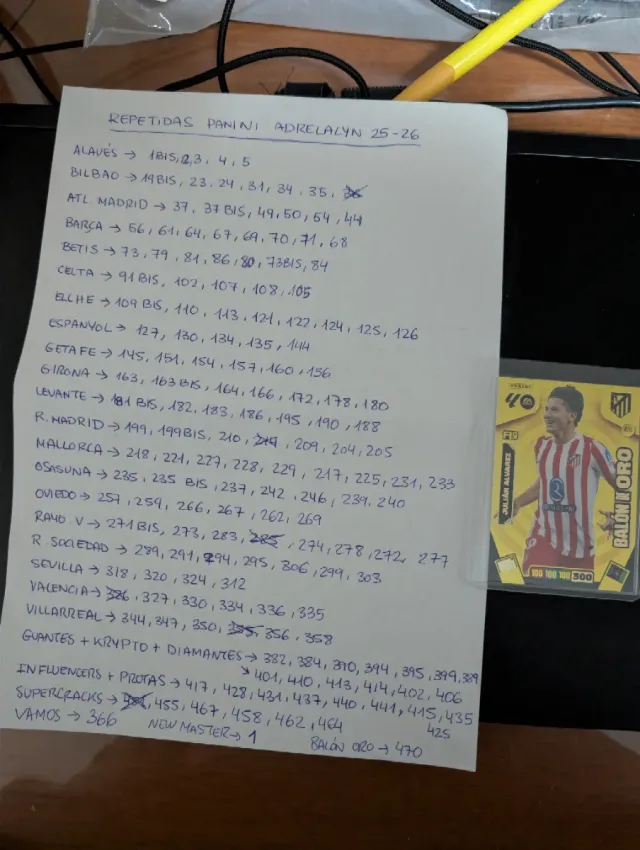 REPETIDAS PANINI ADRELALYN 25-26
ALAVÉS → 1BIS, 2, 3, 4, 5
BILBAO → 19BIS, 23, 24, 31, 34, 35, 36
ATL. MADRID → 37, 37 BIS, 49, 50, 54, 44
BARÇA → 56, 61, 64, 67, 69, 70, 71, 68
BETIS → 73, 79, 81, 86, 80, 73BIS, 84
CELTA → 91 BIS, 102, 107, 108, 105
ELCHE → 109 BIS, 110, 113, 121, 122, 124, 125, 126
ESPANYOL → 127, 130, 134, 135, 144
GETAFE → 145, 151, 154, 157, 160, 156
GIRONA → 163, 163 BIS, 164, 166, 172, 178, 180
LEVANTE → 181 BIS, 182, 183, 186, 195, 190, 188
R. MADRID → 199, 199BIS, 210, 209, 204, 205
MALLORCA → 218, 221, 227, 228, 229, 217, 225, 231, 233
OSASUNA → 235, 235 BIS, 237, 242, 246, 239, 240
OVIEDO → 257, 259, 266, 267, 262, 269
RAYO. V → 271 BIS, 273, 283, 285, 274, 278, 272, 277
R. SOCIEDAD → 289, 291, 294, 295, 306, 299, 303
SEVILLA → 318, 320, 324, 312
VALENCIA → 326, 327, 330, 334, 336, 335
VILLARREAL → 344, 347, 350, 355, 356, 358
GUANTES + KRYPTO + DIAMANTES → 382, 384, 390, 394, 395, 399, 389
↘ 401, 410, 413, 414, 402, 406
INFLUENCERS + PROTAS → 417, 428, 431, 437, 440, 441, 415, 435
425
SUPERCRACKS → 455, 467, 458, 462, 464
VAMOS → 366 NEW MASTER → 1 BALÓN ORO → 470
JULIÁN ALVAREZ
BALÓN DE ORO
100 100 100 300